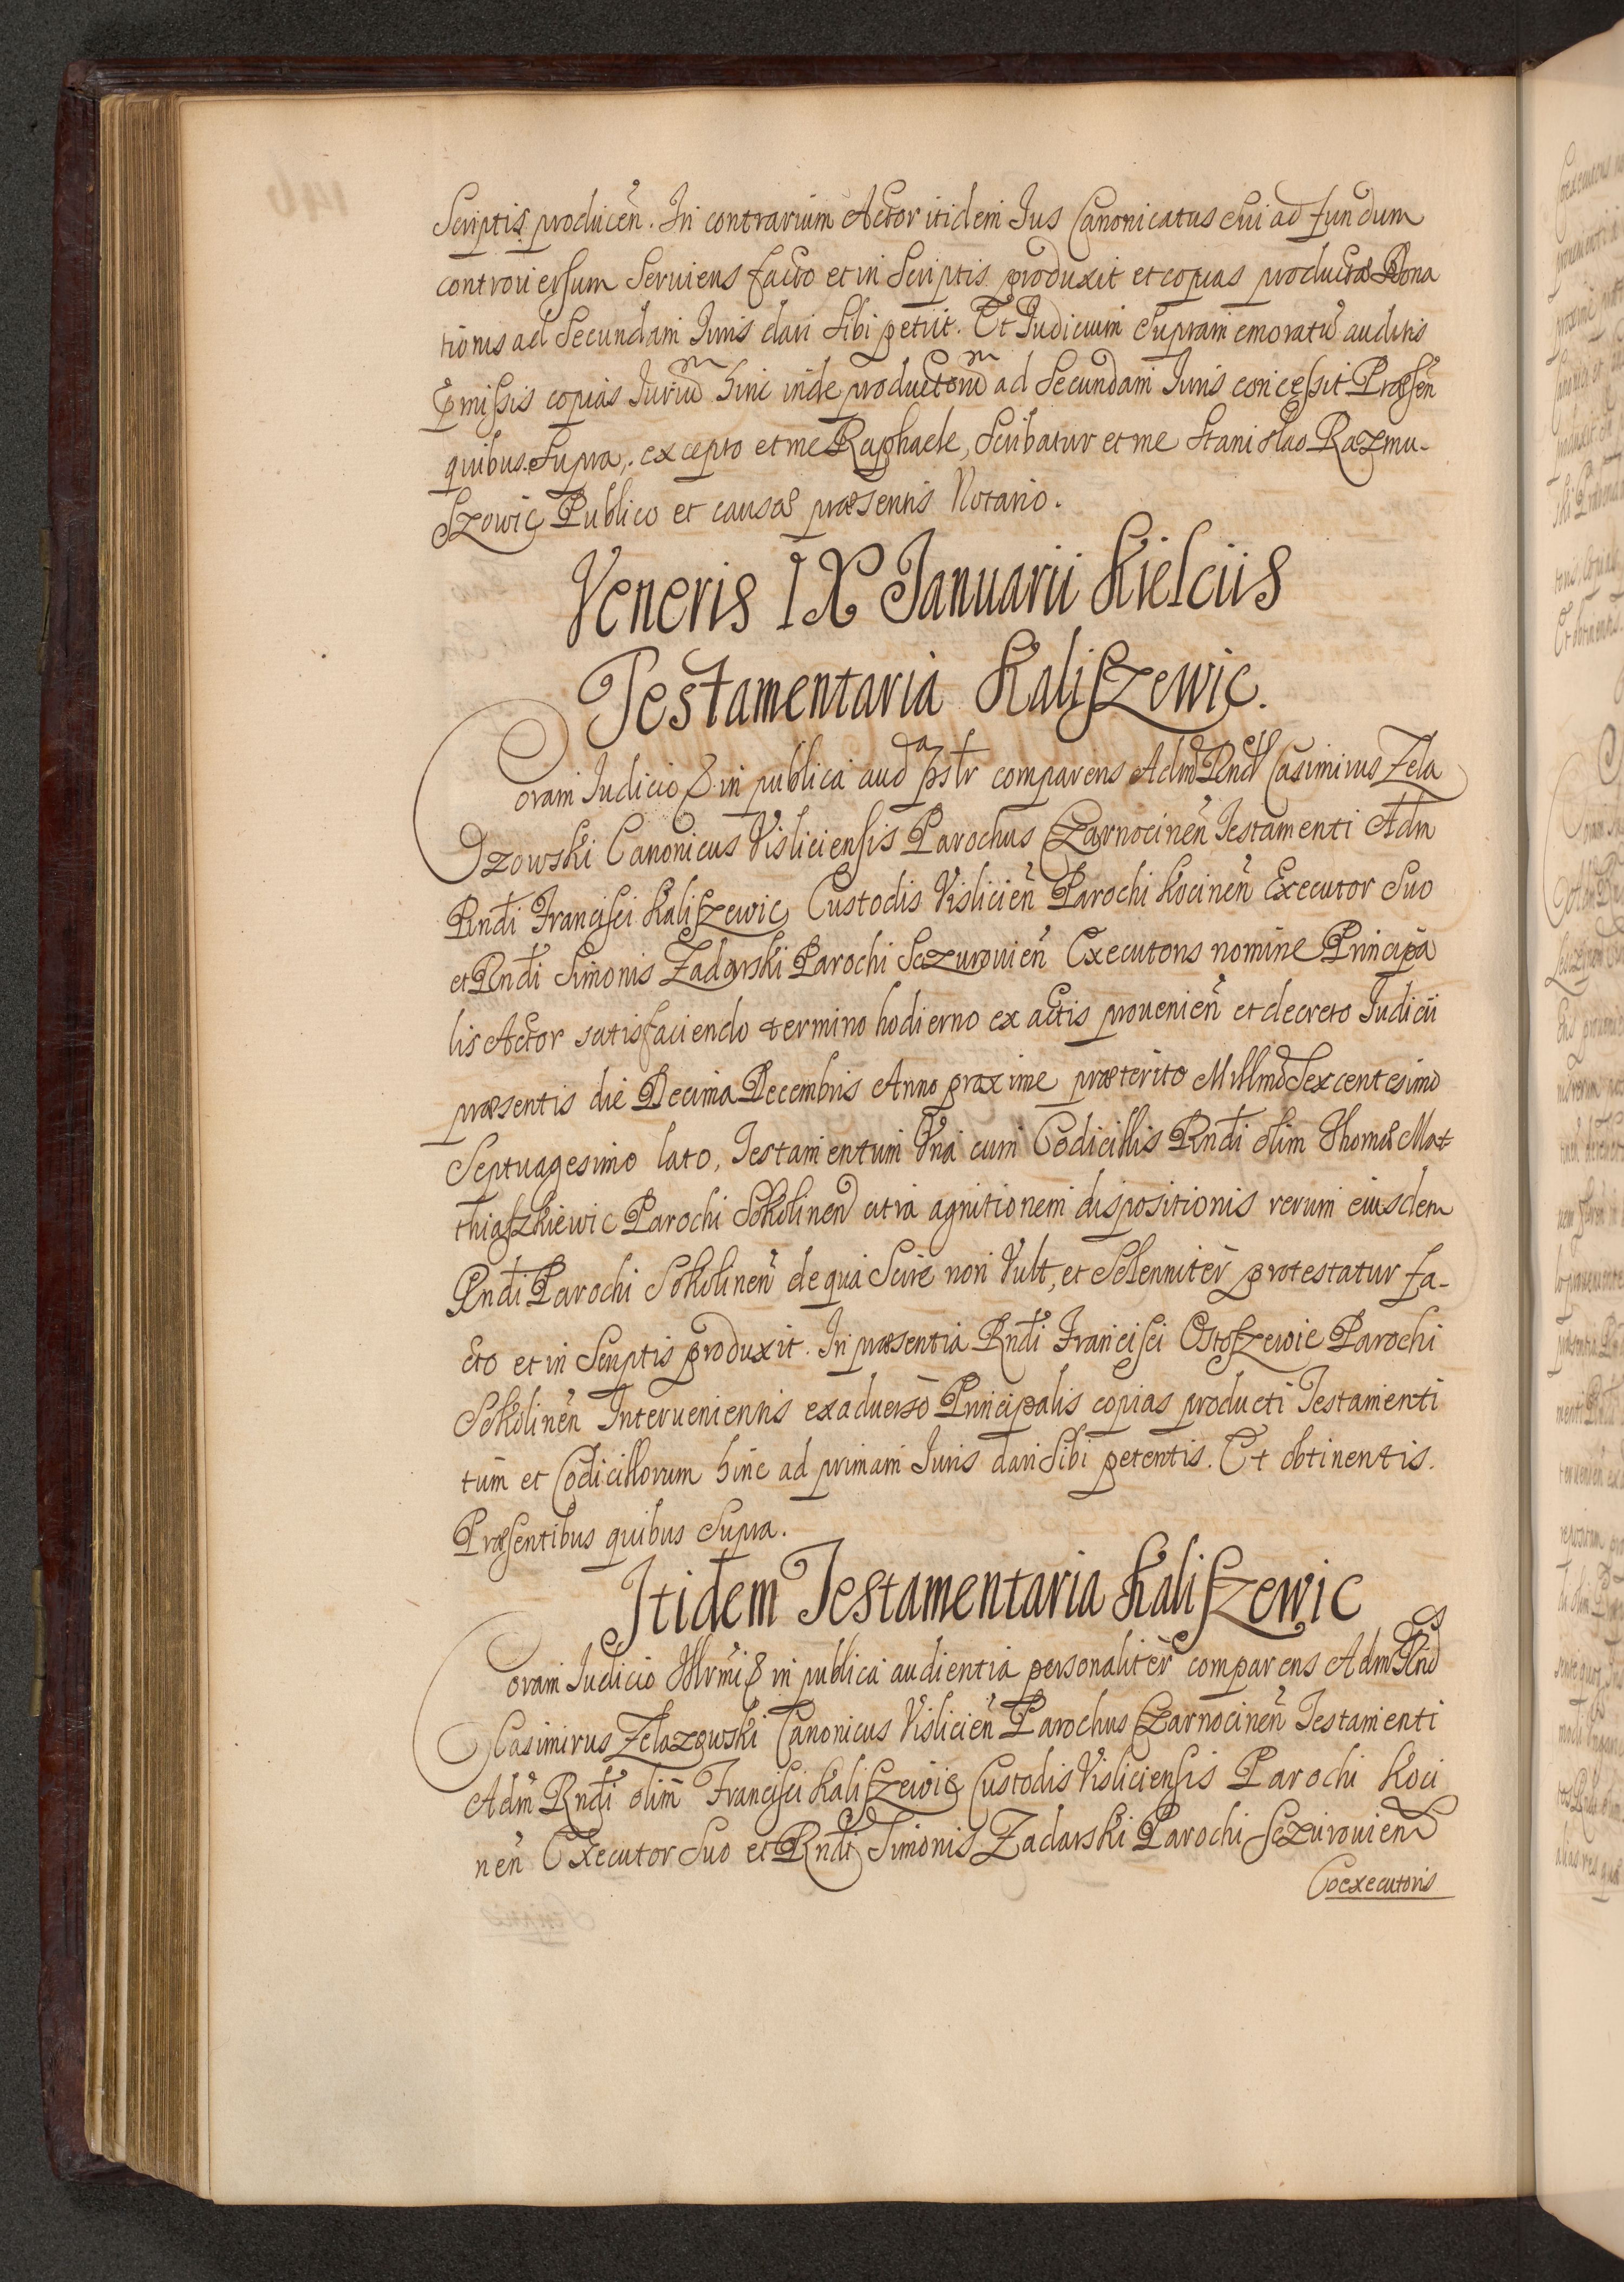 Scriptis producen̄. In contrarium Actor itidem Ius Canonicatus Sui ad fundum
controuersum Seruiens facto et in Scriptis produxit et copias productæ Dona
tionis ad Secundam Iuris dari Sibi petiit. Et Iudicium Supramemoratū auditis
p̄missis copias Iuriūm hinc inde productorūm ad Secundam Iuris concessit Præsen̄
quibus Supra, excepto et me Raphaele, Scribatur et me Stanislao Razmu-
Szowic Publico et causæ præsentis Notario.
Veneris IX Januarii Kielciis
Testamentaria Kaliszewic.
Coram Judicio & in publica audᵃ psłr comparens Adm Rndꝰ Casimirus Zela
Dzowski Canonicus Visliciensis Parochus Czarnocinen̄ Testamenti Adm
Rndi Francisci Kaliszewic Custodis Vislicien̄ Parochi Kocinen̄ Executor Suo
et Rndi Simonis Zadarski Parochi Sczurouien̄ Executoris nomine Principa
lis Actor satisfaciendo termino hodierno ex actis prouenien̄ et decreto Iudicii
præsentis die Decima Decembris Anno proxime præterito Millmo Sexcentesimo
Septuagesimo lato, Testamentum Vna cum Codicillis Rndi olim Thomæ Mat
thiaszkiewic Parochi Sokolinen̄ citra agnitionem dispositionis rerum eiusdem
Rndi Parochi Sokolinen̄ de qua Scire non Vult, et Solenniter protestatur fa-
cto et in Scriptis produxit. In præsentia Rndi Francisci Ostoszewic Parochi
Sokolinen̄ Interuenientis ex aduerso Principalis copias producti Testamenti
tum et Codicillorum hinc ad primam Iuris dari Sibi petentis. Et obtinentis.
Præsentibus quibus Supra.
Itidem Testamentaria Kaliszewic
Coram Iudicio Illrmi & in publica audientia personaliter comparens Adm Rndꝰ
Casimirus Zelazowski Canonicus Vislicien̄ Parochus Czarnocinen̄ Testamenti
Adm Rndi olim Francisci Kaliszewic Custodis Visliciensis Parochi Koci
nen̄ Executor Suo et Rndi Simonis Zadarski Parochi Sczurouien̄
Coexecutoris